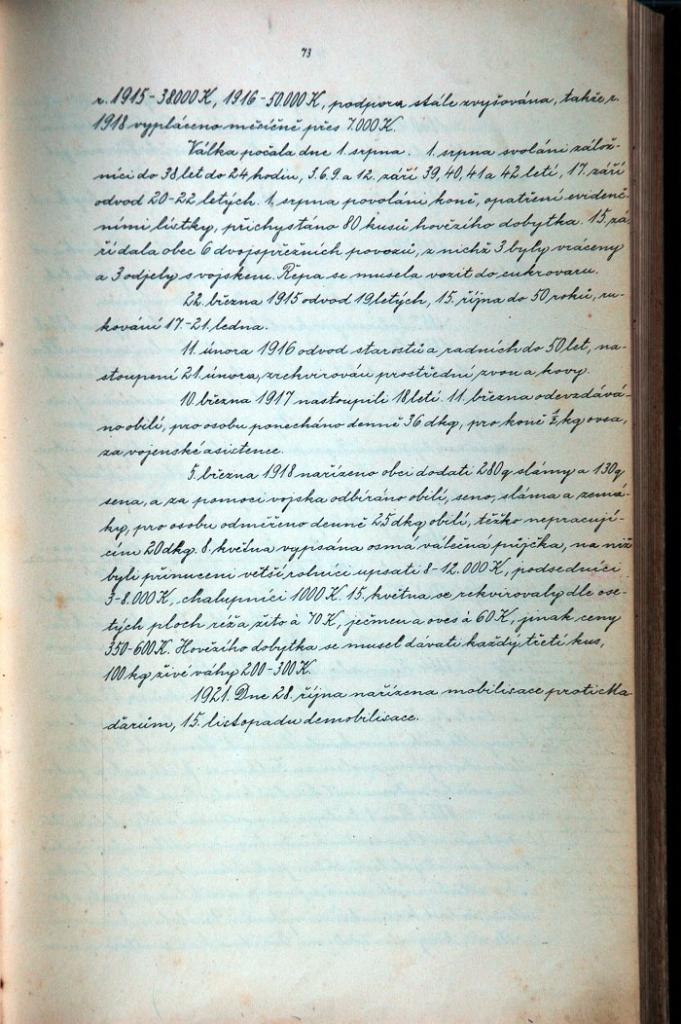 73
r. 1915 - 38000 K, 1916 - 50.000 K, podpora stále zvyšována, takže r.
1918 vypláceno měsíčně přes 7.000 K.
Válka počala dne 1. srpna 1. srpna svoláni zálož-
níci do 38 let do 24 hodin, 3. 6. 9. a 12. září 39, 40, 41 a 42 letí, 17. září
odvod 20-22 letých. 1. srpna povoláni koně, opatření evidenč-
ními lístky, přichystáno 80 kusů hovězího dobytka. 15. zá-
ří dala obec 6 dvojspřežních povozů, z nichž 3 byly vráceny
a 3 odjely s vojskem. Řepa se musela vozit do cukrovaru.
22. března 1915 odvod 19 letých, 15. října do 50 roků, ru-
kování 17.-21. ledna.
11. února 1916 odvod starostů a radních do 50 let, na-
stoupení 21. února, zrekvirován prostřední zvon a kovy.
10. března 1917 nastoupili 18 letí. 11. března odevzdává-
no obilí, pro osobu ponecháno denně 36 dkg, pro koně ½ kg ovsa,
za vojenské asistence.
5. března 1918 nařízeno obci dodati 280 q slámy a 130 q
sena, a za pomoci vojska odbíráno obilí, seno, sláma a zemá-
ky, pro osobu odměřeno denně 25 dkg obilí, těžko nepracují-
cím 20 dkg. 8. května vypsána osmá válečná půjčka, na niž
byli přinuceni větší rolníci upsati 8-12.000 K, podsedníci
3-8.000 K, chalupníci 1000 K. 15. května se rekvirovaly dle ose-
tých ploch réž a žito à 70 K, ječmen a oves à 60 K, jinak ceny
350-600 K. Hovězího dobytka se musel dávati každý třetí kus,
100 kg živé váhy 200-300 K.
1921. Dne 28. října nařízena mobilisace proti Ma
ďarům, 15. listopadu demobilisace.